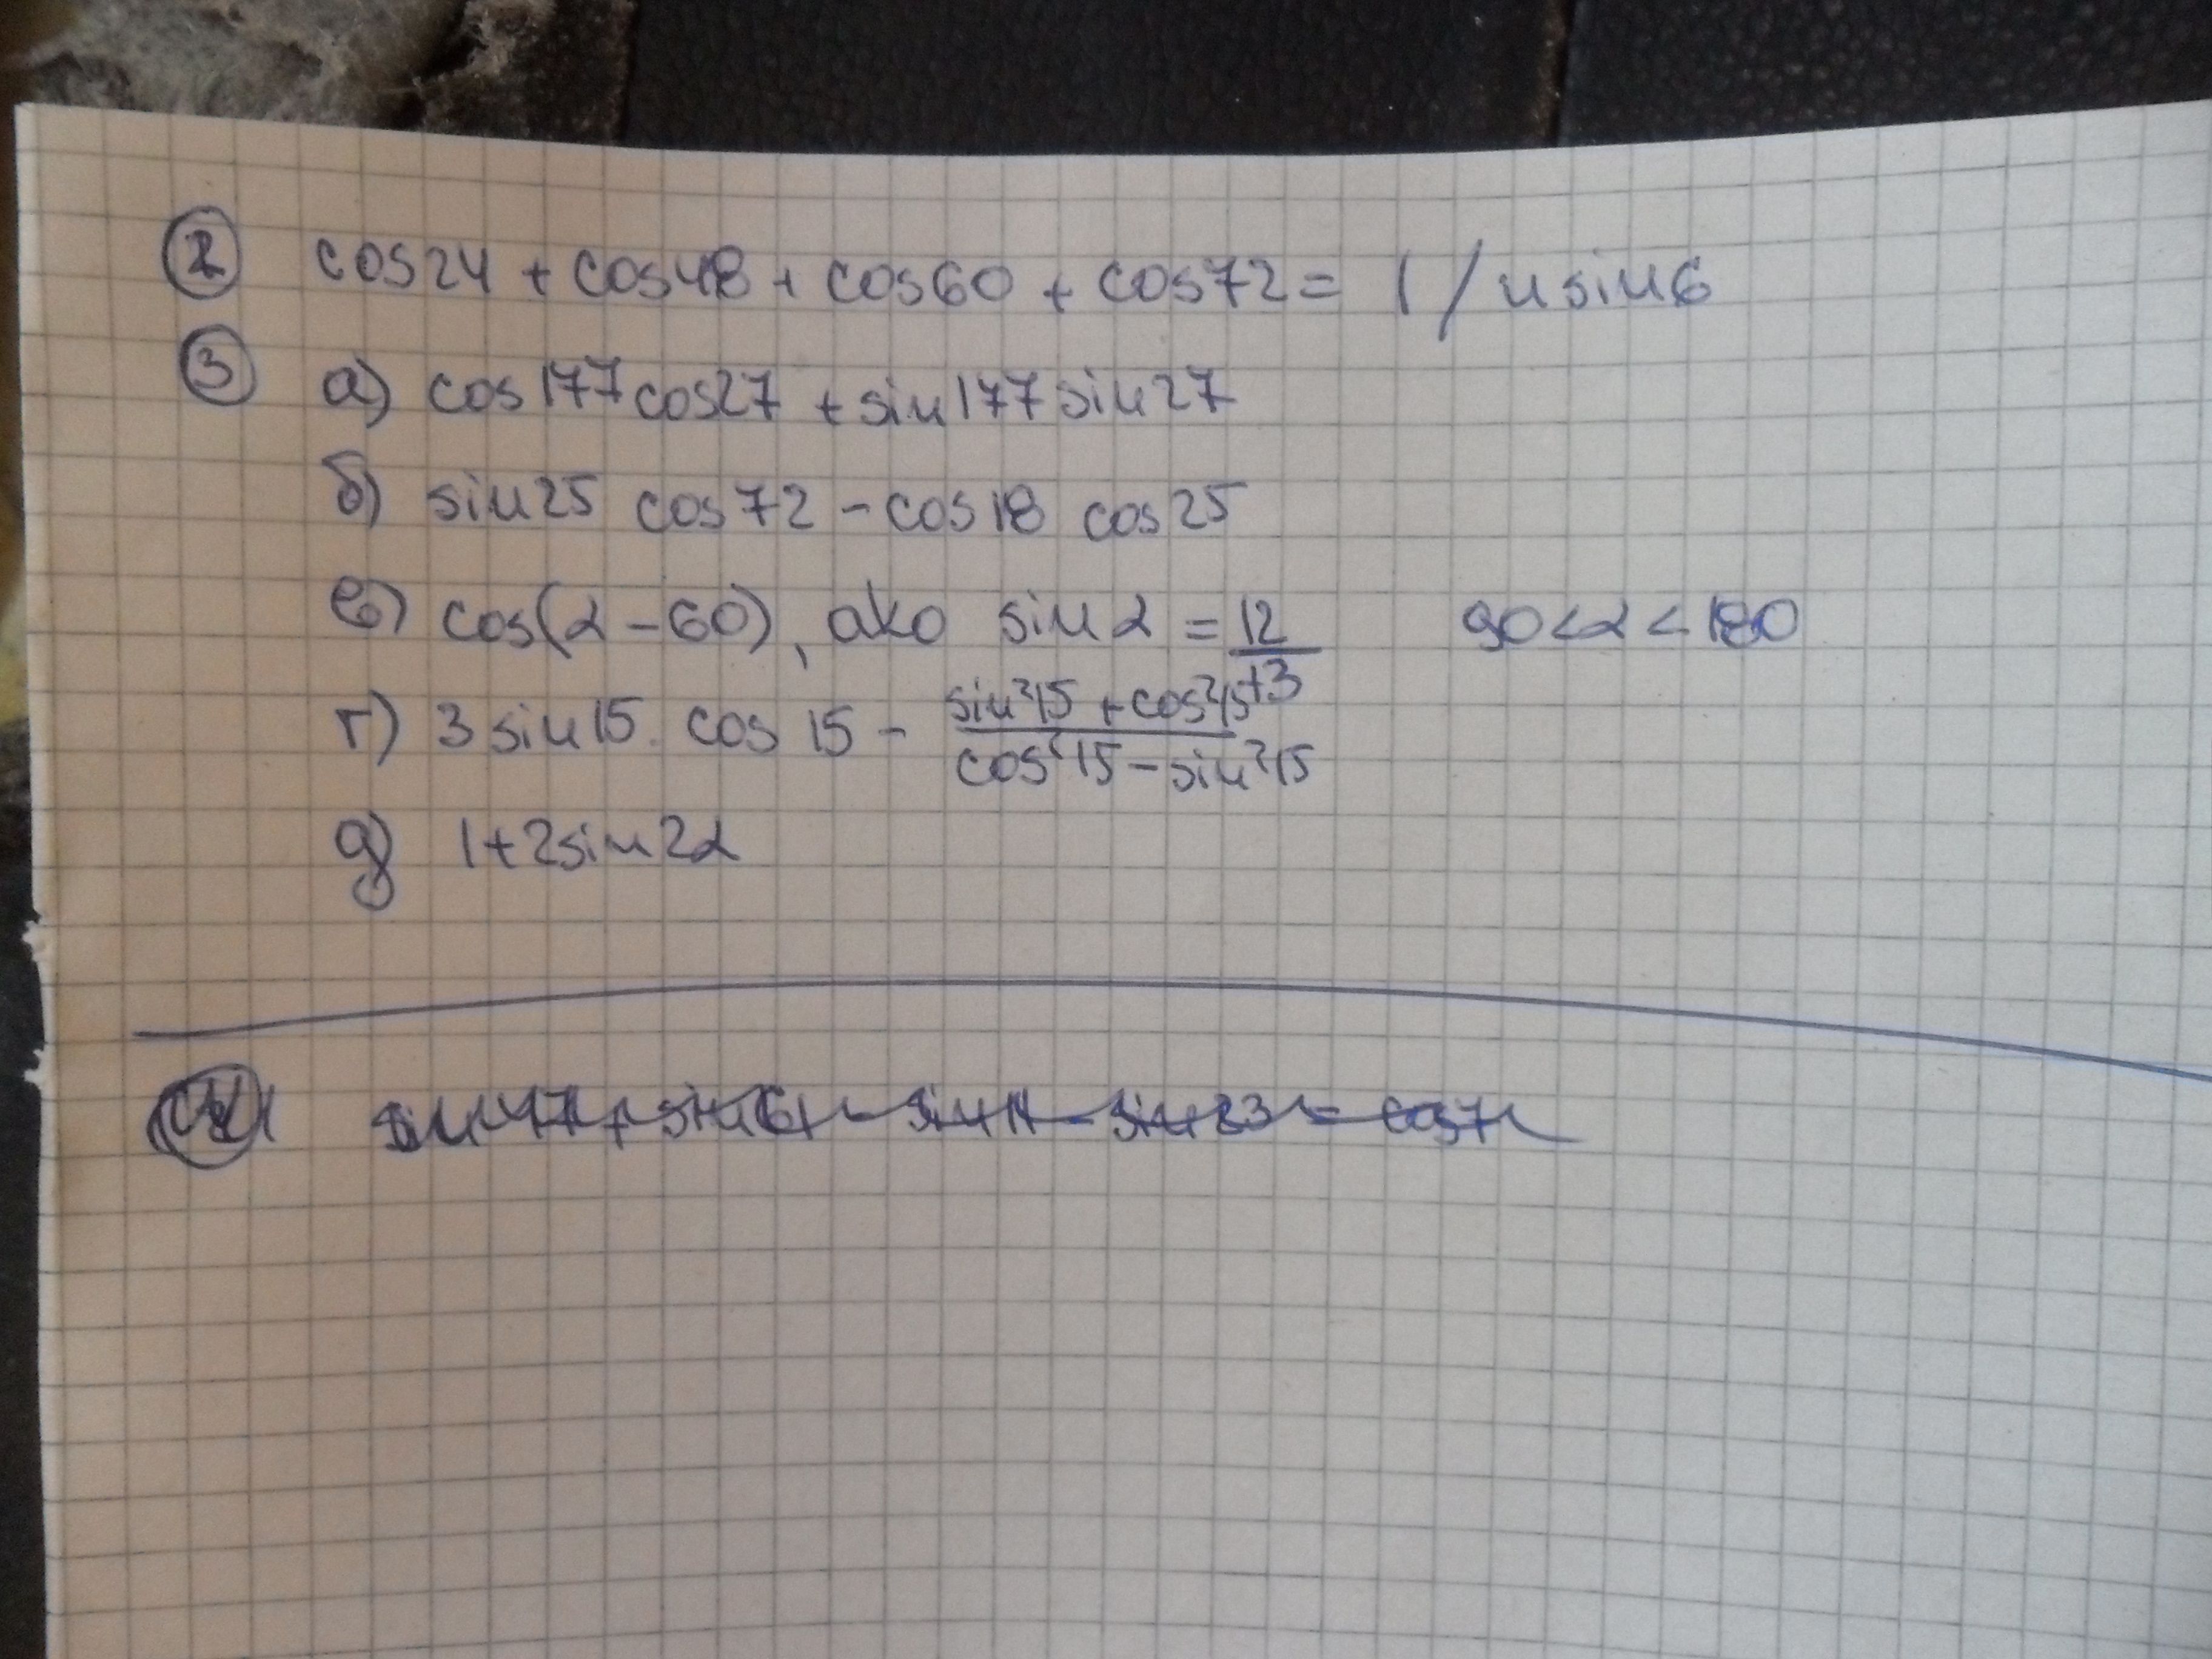 ② cos24 + cos48 + cos60 + cos72 = 1/4sin6
③ а) cos177cos27 + sin177sin27
б) sin25 cos72 - cos18 cos25
в) cos(α - 60), ако sinα = 12/13 90<α<180
г) 3sin15.cos15 - sin²15 + cos²15/cos²15 - sin²15
д) 1+2sin2α
sin47 + sin61 - sin11 - sin23 = cos7